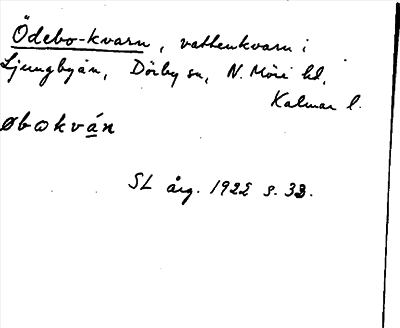 Ödebo-kvarn, vattenkvarn i
Ljungbyån, Dörby sn, N. Möre hd,
Kalmar l.
øbokván
SL årg. 1922 s. 33.